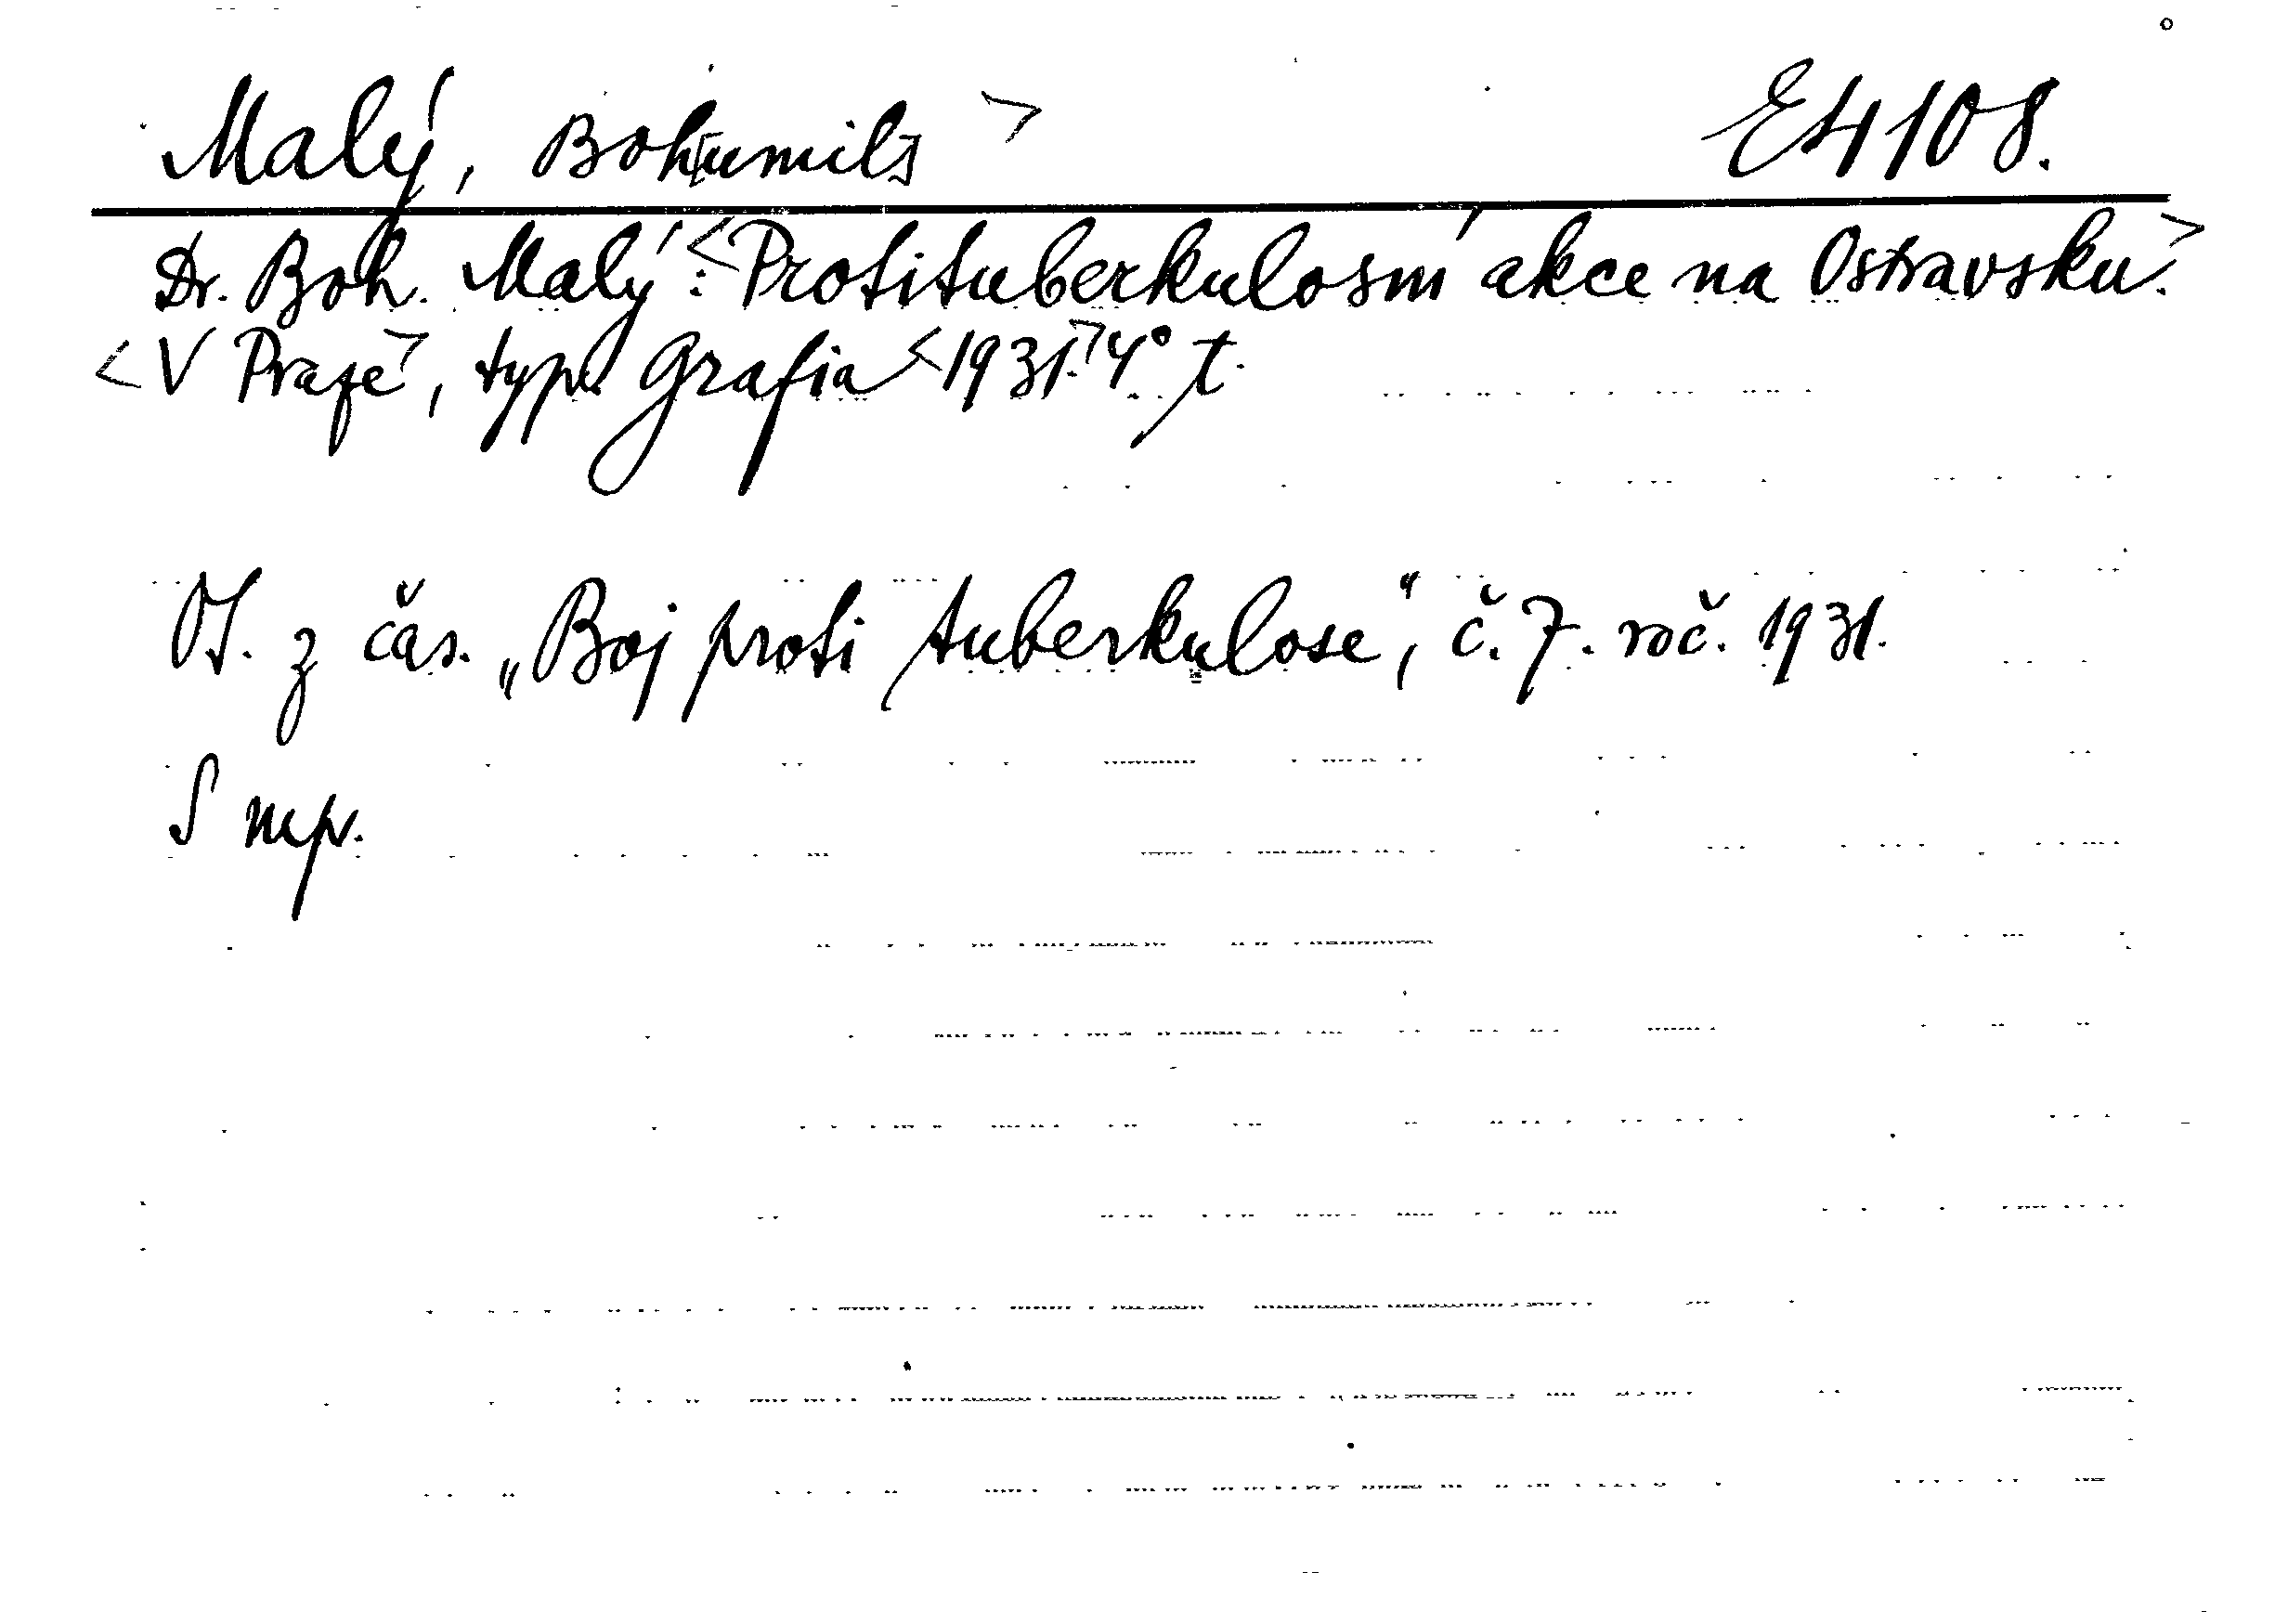 Malý, Boh[umil] > E 4108.
Dr. Boh. Malý: <Protituberkulosní akce na Ostravsku.>
<V Praze>, typ. Grafia <1931.> 4° t.
Ot. z čas. „Boj proti tuberkulose“, č. 7. roč. 1931.